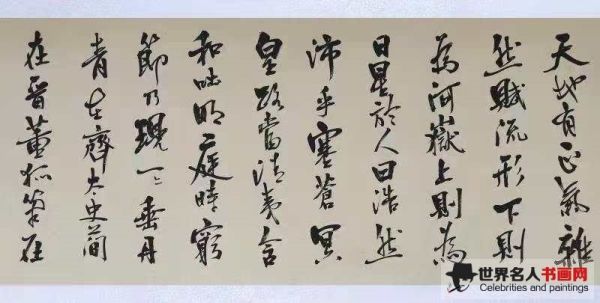 天地有正氣雜
然賦流形下則
為河嶽上則為
日星於人曰浩然
沛乎塞蒼冥
皇路當清夷含
和吐明庭時窮
節乃現一一垂丹
青在齊太史簡
在晉董狐筆在
世界名人书画网
Celebrities and paintings